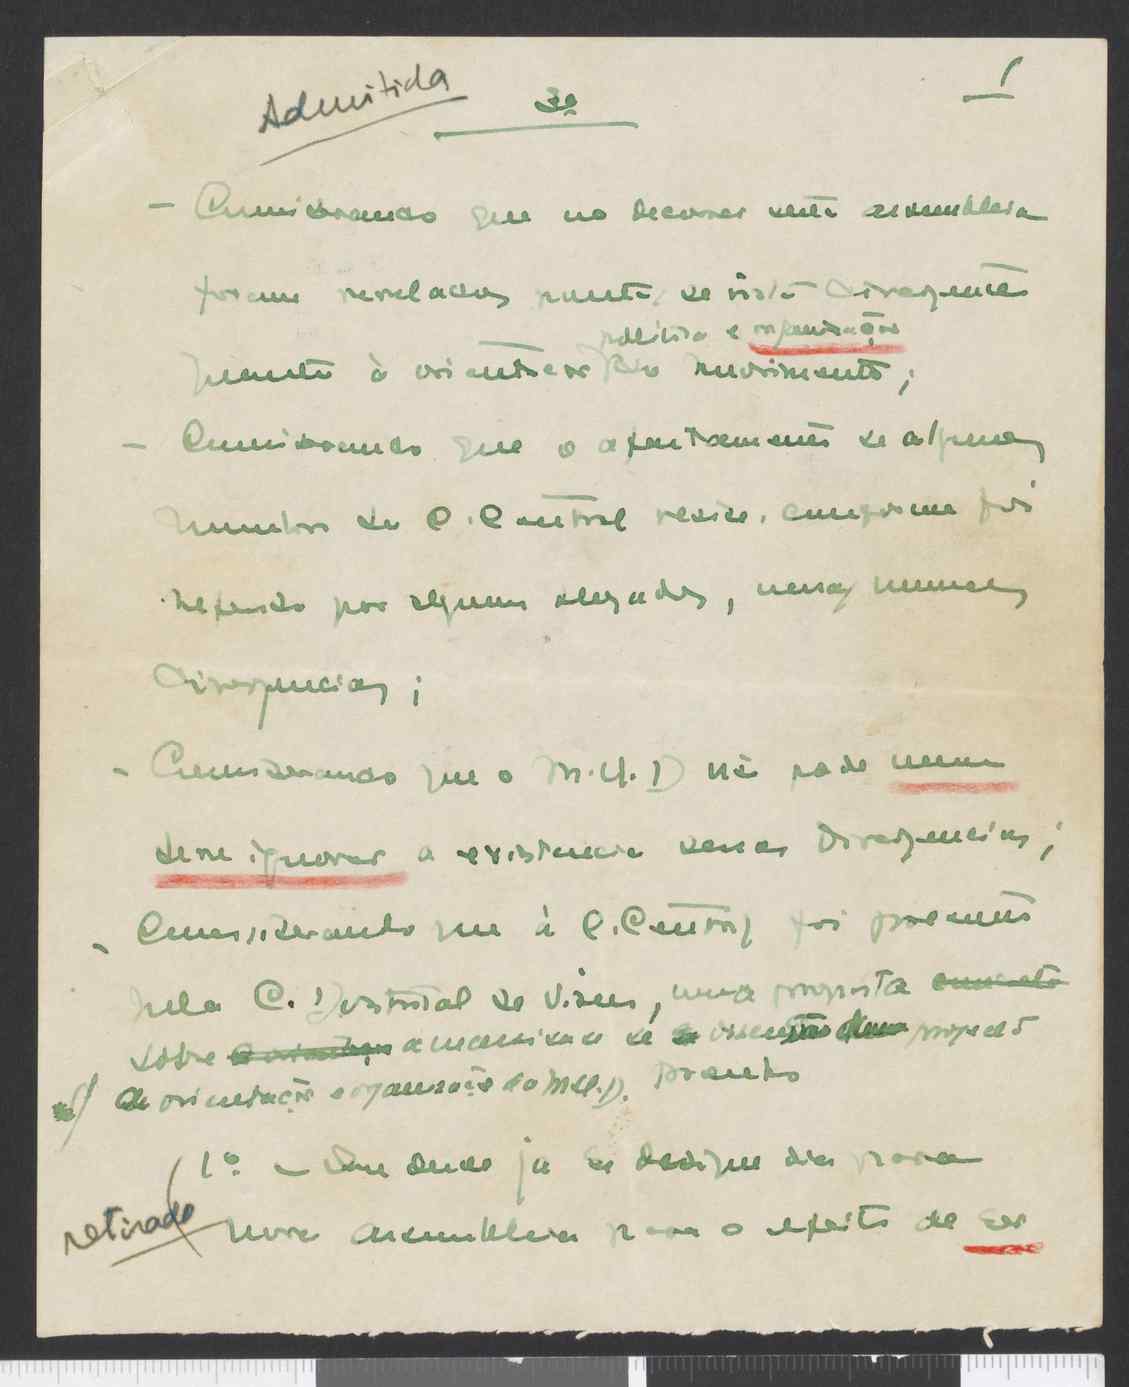 Admitida
3º
1
- Considerando que no decorrer desta assembleia
foram revelados pontos de vista divergentes
política e organização
quanto à orientação do movimento;
- Considerando que o afastamento de alguns
membros da C. Central reside, conforme foi
referido por alguns delegados, nessas mesmas
divergencias;
- Considerando que o M.U.D não pode nem
deve ignorar a existencia dessas divergencias;
- Considerando que à C. Central foi presente
pela C. Distrital de Viseu, uma proposta
sobre a necessidade de projecto
de orientação e organização do M.U.D.
1º - Que desde já se designe dia para
retirado
nova assembleia para o efeito de ser